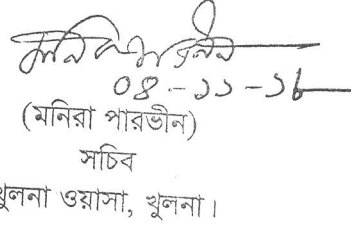 ০৪-১১-১৮
(মনিরা পারভীন)
সচিব
খুলনা ওয়াসা, খুলনা।